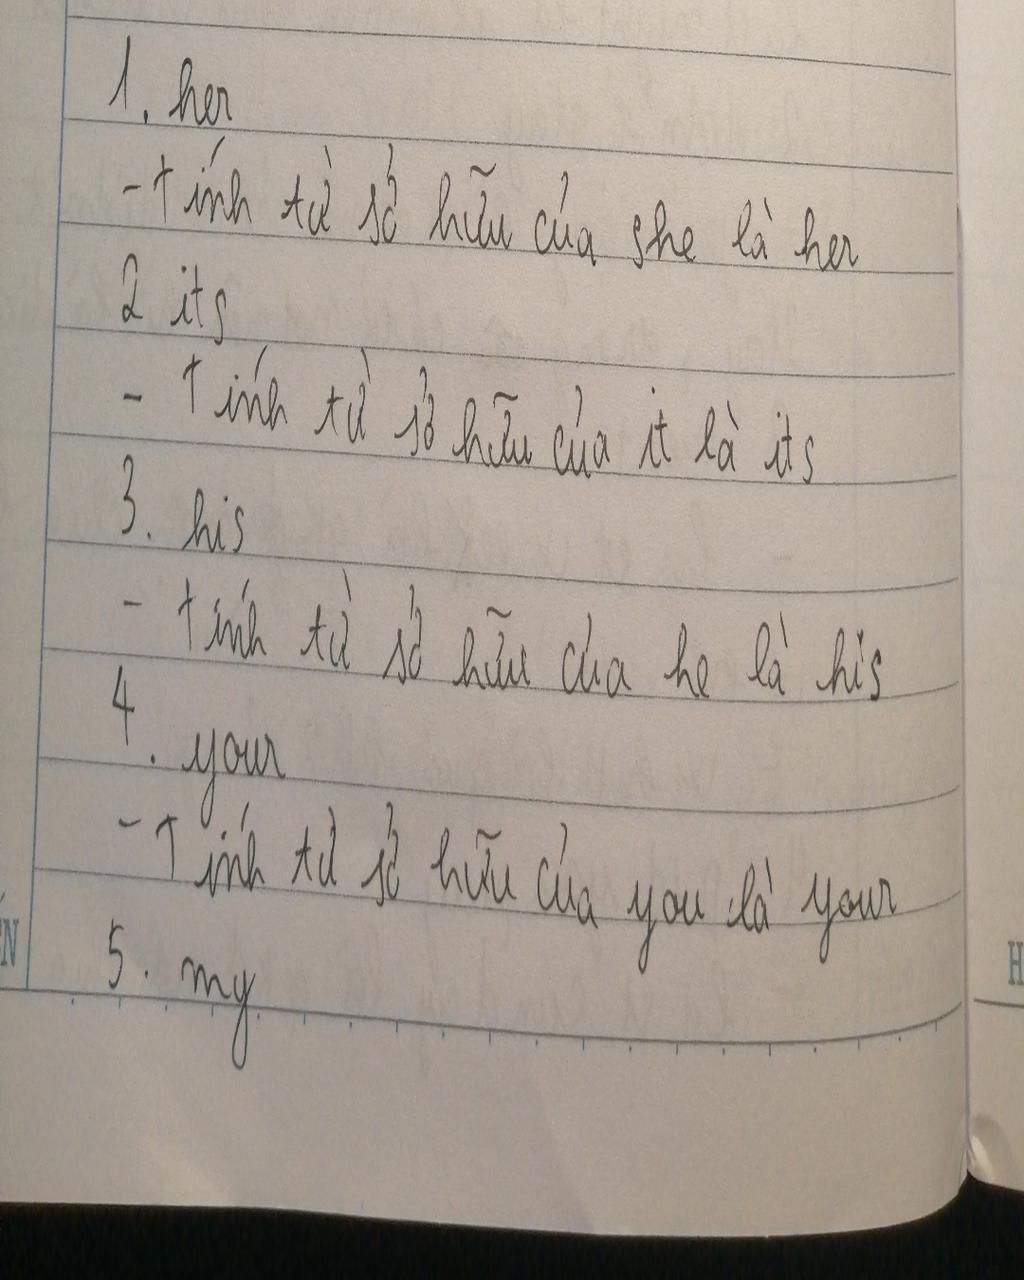 1. her
- tính từ sở hữu của she là her
2 its
- Tính từ sở hữu của it là its
3. his
- tính từ sở hữu của he là his
4. your
- Tính từ sở hữu của you là your
5. my